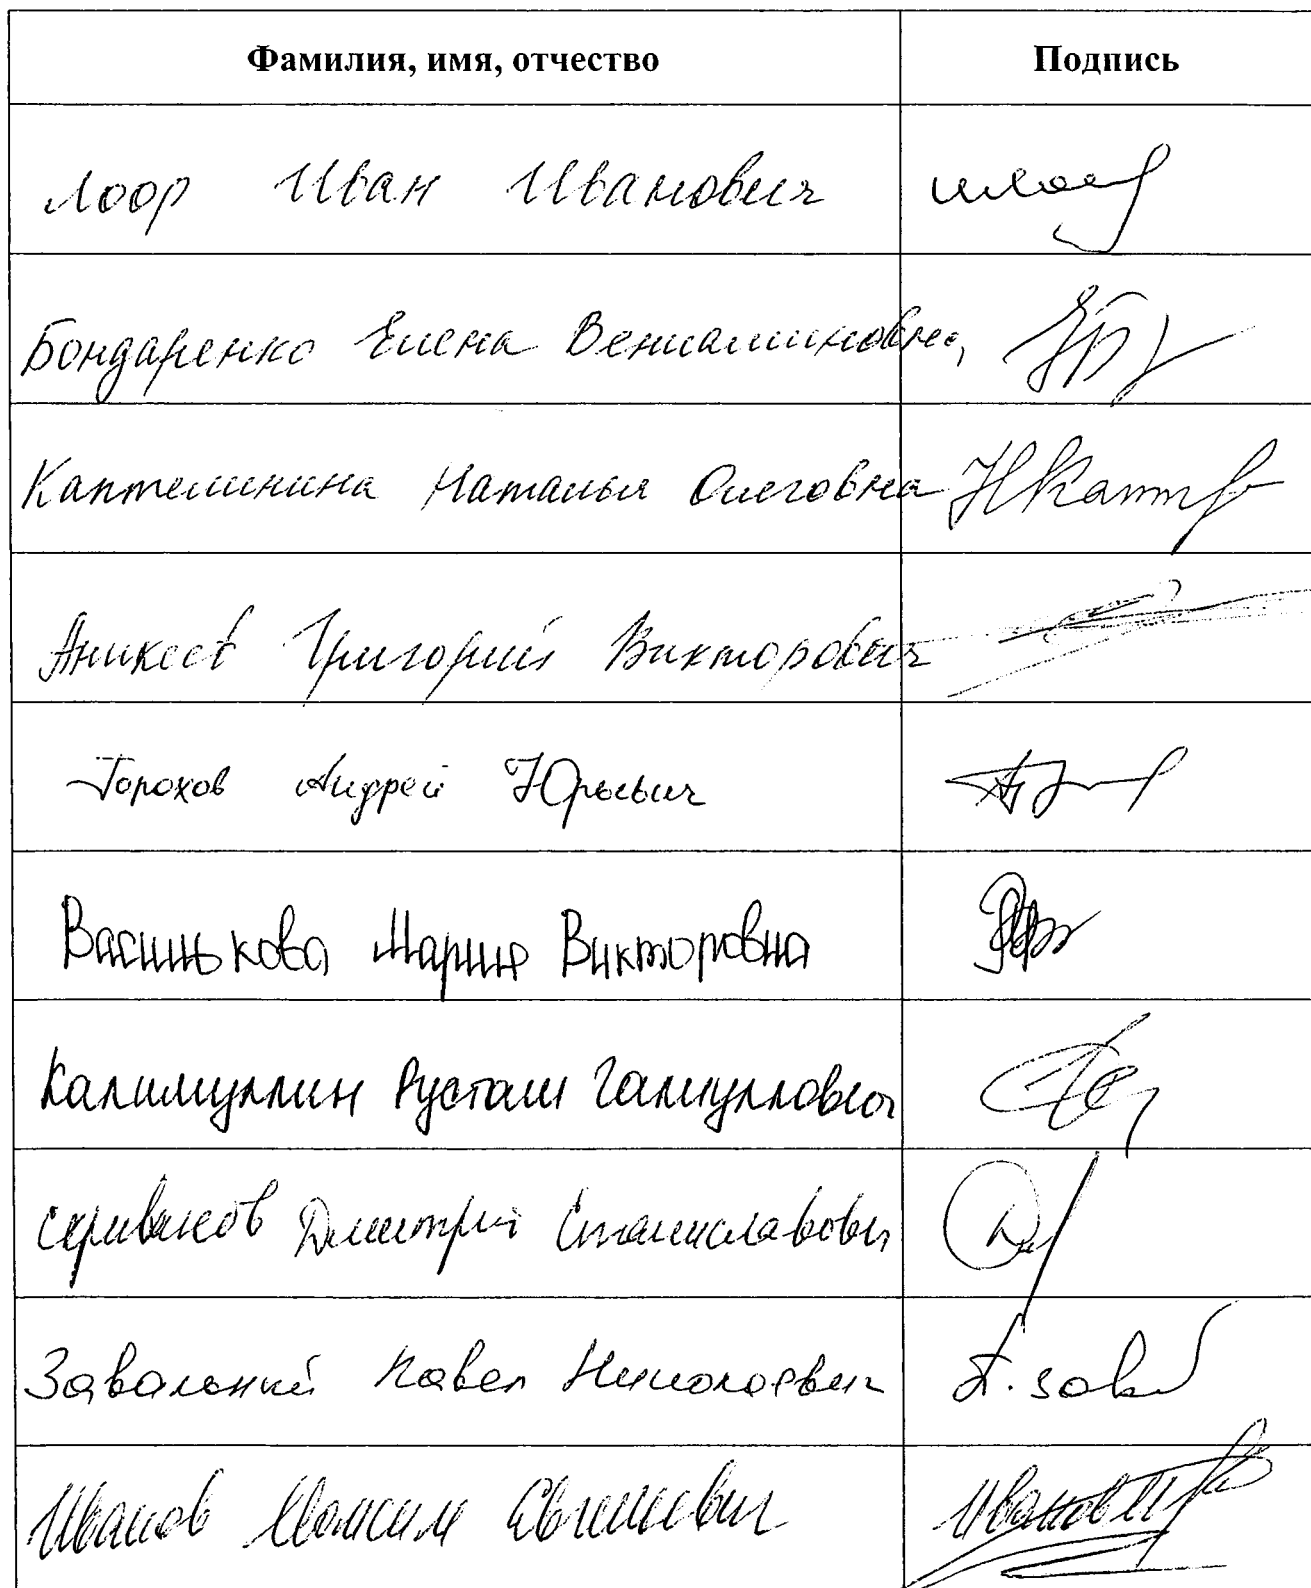 Фамилия, имя, отчество Подпись
Лоор Иван Иванович
Бондаренко Елена Вениаминовна
Каптелинина Наталья Олеговна НКапт
Аникеев Григорий Викторович
Горохов Андрей Юрьевич
Василькова Мария Викторовна
Калимуллин Рустам Гамуллович
Скриванов Дмитрий Станиславович
Завальный Павел Николаевич П.Зав
Иванов Максим Евгеньевич Иванов